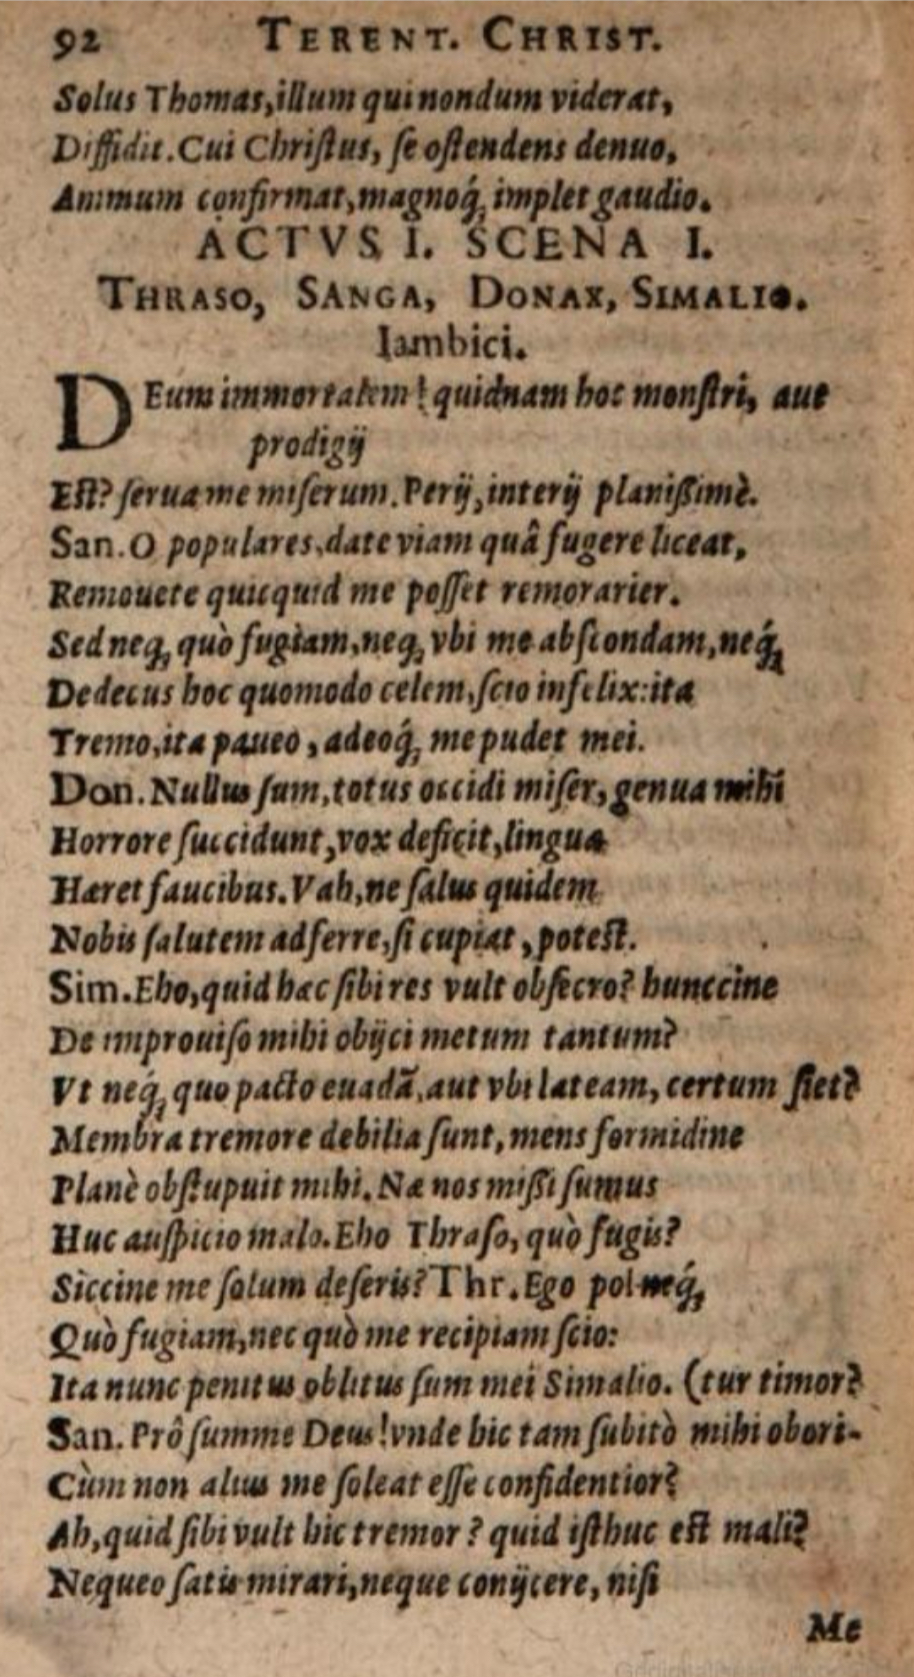 92 TERENT. CHRIST.
Solus Thomas, illum qui nondum viderat,
Diffidit. Cui Chriſtus, ſe oſtendens denuo,
Animum confirmat, magnoq́; implet gaudio.
ACTVS I. SCENA I.
THRASO, SANGA, DONAX, SIMALIO.
Iambici.
DEum immortalem! quidnam hoc monſtri, aut
prodigij
Eſt? ſerua me miſerum. Perij, interij planißimè.
San. O populares, date viam quâ fugere liceat,
Remouete quicquid me poſſet remorarier.
Sed neq; quò fugiam, neq; vbi me abſcondam, neq́;
Dedecus hoc quomodo celem, ſcio infelix: ita
Tremo, ita paueo, adeoq́; me pudet mei.
Don. Nullus ſum, totus occidi miſer, genua mihi
Horrore ſuccidunt, vox deficit, lingua
Hæret faucibus. Vah, ne ſalus quidem
Nobis ſalutem adferre, ſi cupiat, poteſt.
Sim. Eho, quid hæc ſibi res vult obſecro? hunccine
De improuiſo mihi obijci metum tantum?
Vt neq́; quo pacto euadã, aut vbi lateam, certum ſiet?
Membra tremore debilia ſunt, mens formidine
Planè obſtupuit mihi. Næ nos mißi ſumus
Huc auſpicio malo. Eho Thraſo, quò fugis?
Siccine me ſolum deſeris? Thr. Ego pol neq́;
Quò fugiam, nec quò me recipiam ſcio:
Ita nunc penitus oblitus ſum mei Simalio. (tur timor?
San. Prô ſumme Deus! vnde hic tam ſubitò mihi obori-
Cùm non alius me ſoleat eſſe confidentior?
Ah, quid ſibi vult hic tremor? quid iſthuc eſt mali?
Nequeo ſatis mirari, neque conijcere, niſi
Me